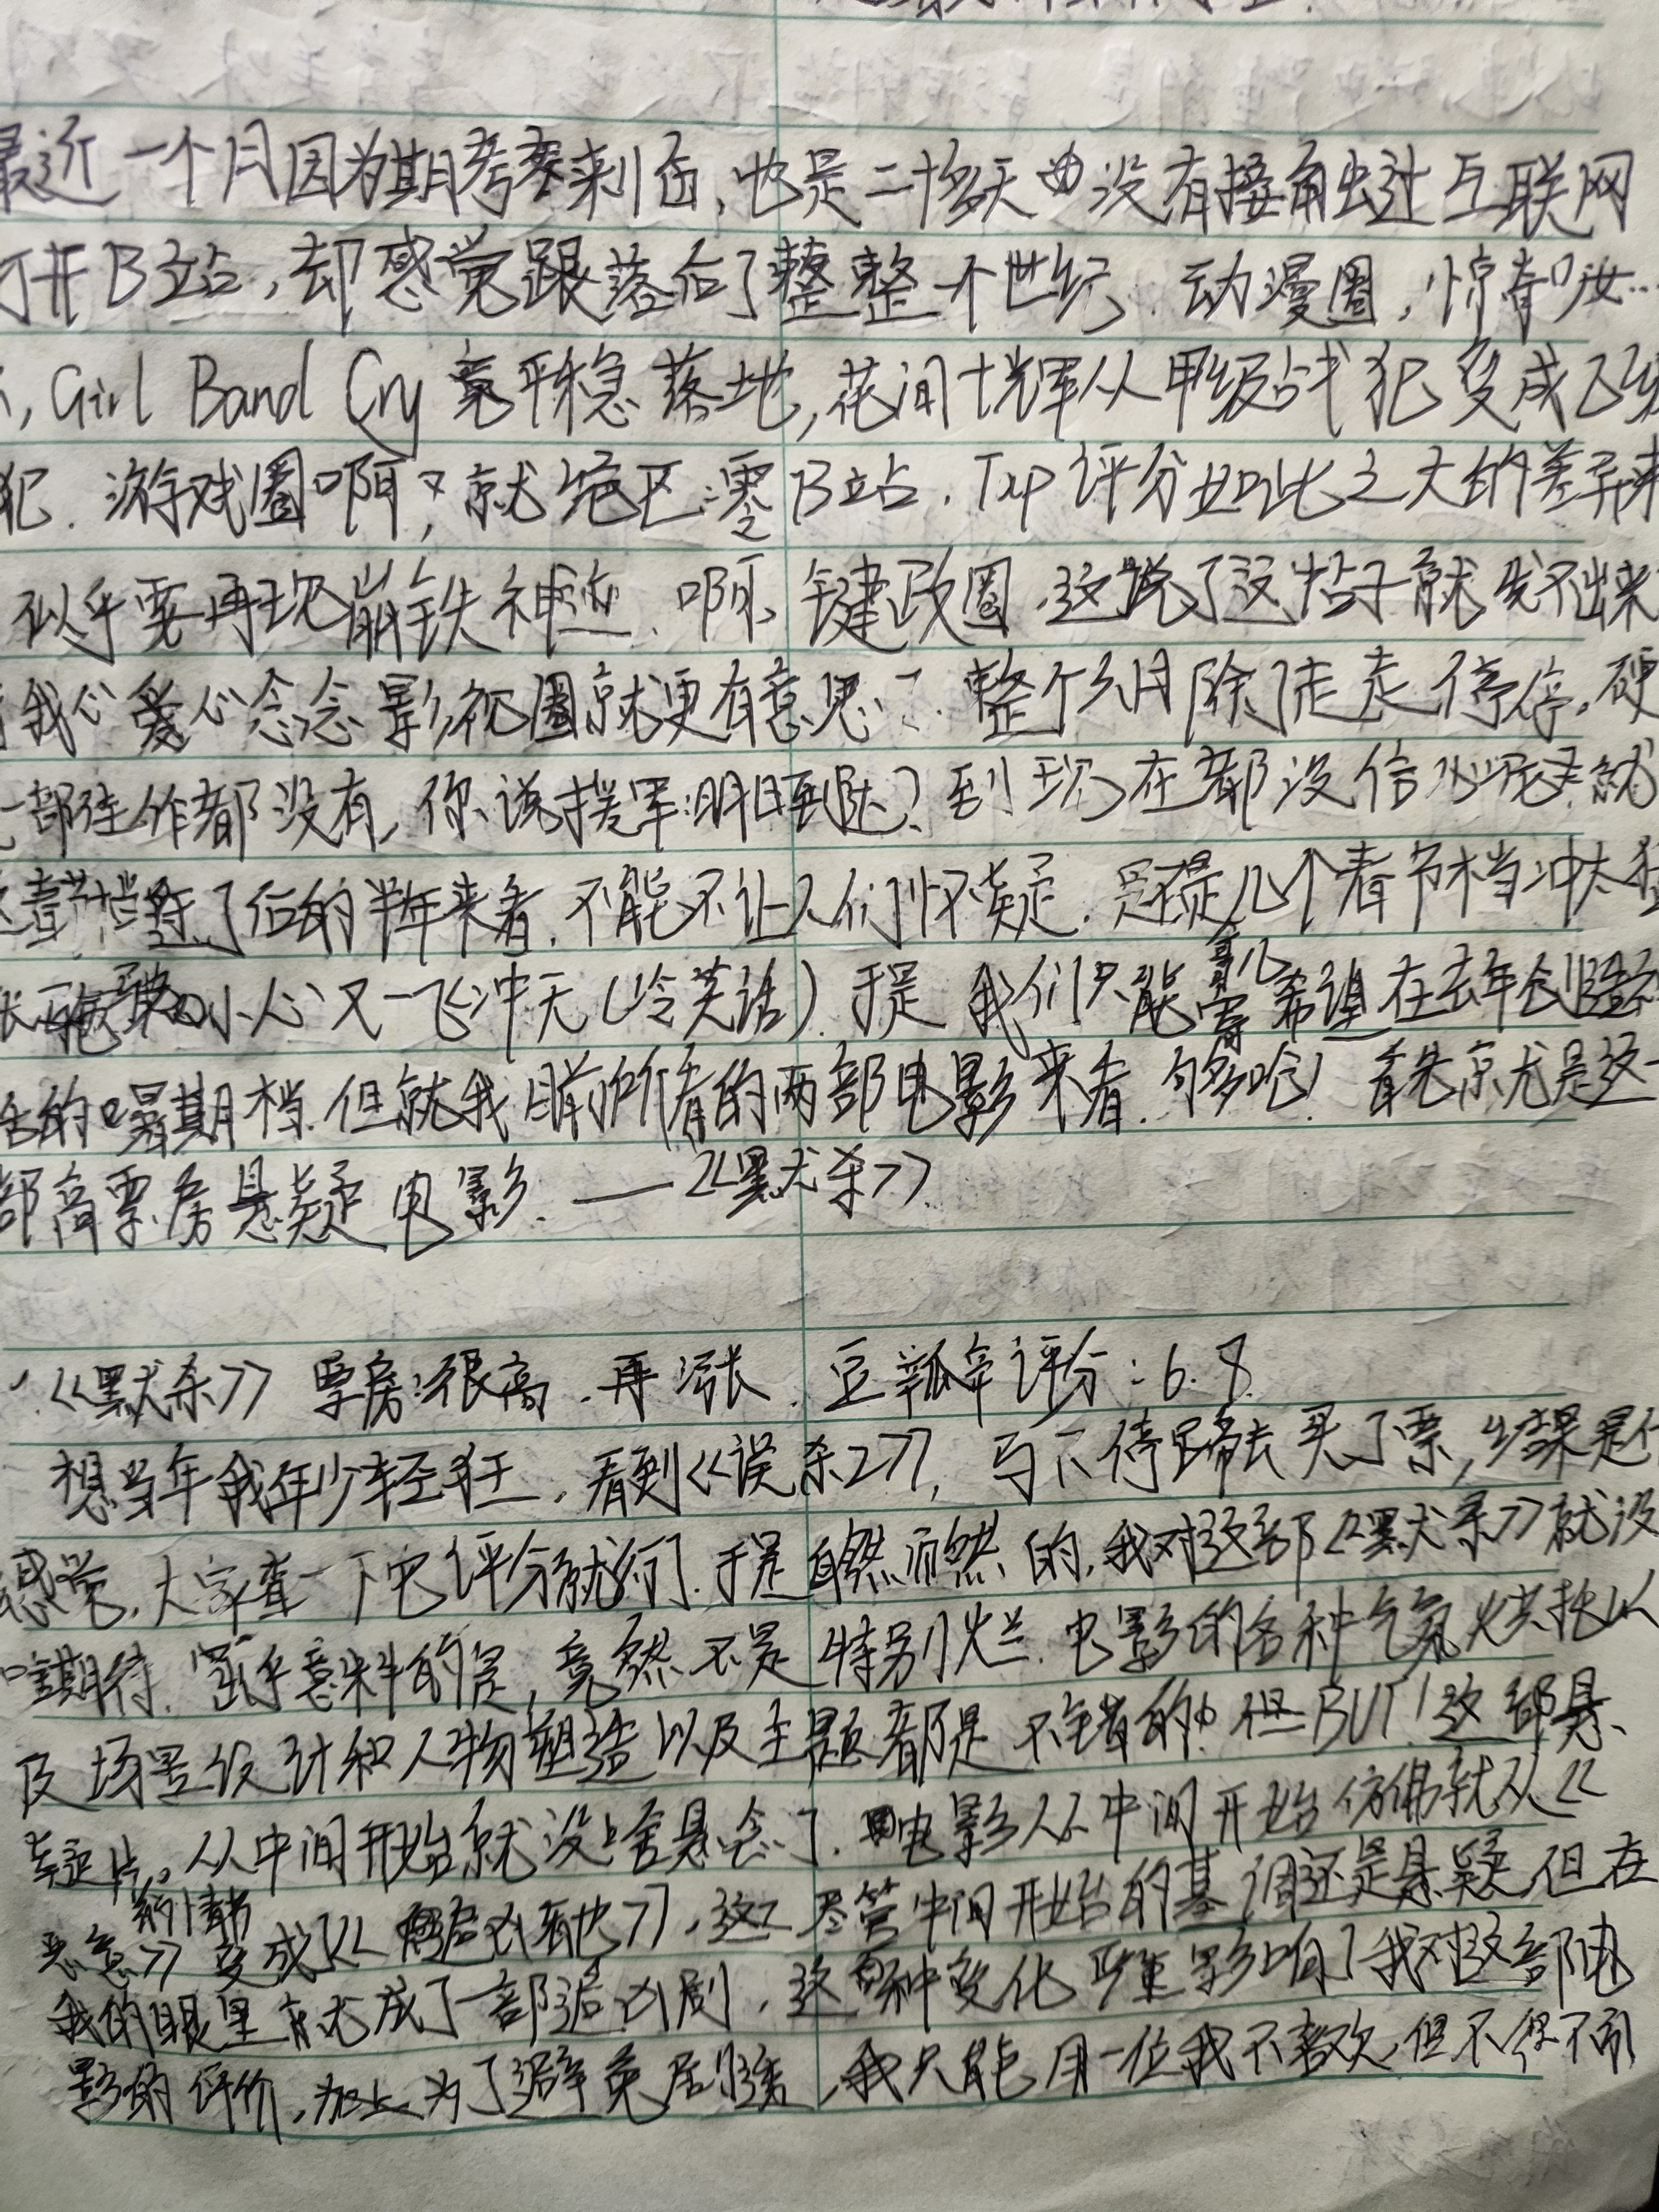 最近一个月因为期考来临,也是二十多天没有接触过互联网
打开B站,却感觉跟落后了整整一个世纪.动漫圈,惊
,Girl Band Cry竟平稳落地,花间十辉从甲级战犯变成乙级
犯.游戏圈啊,就绝区零B站.Tap评分如此之大的差异来
似乎要再现崩铁神迹.啊,键政圈,这说了这帖子就发不出来
我心爱心念念影视圈就更有意思了.整个6月除了走走停停,硬
一部佳作都没有,你说援军:明日到达?到现在都没信
春节档到了后的半年来看,不能不让人们怀疑,是提几个春节档冲太猛
小心又一飞冲天(冷笑话).于是我们只能寄希望在去年创造
的暑期档.但就我目前所看的两部电影来看.够呛!首先就是这一
部高票房悬疑电影.——《默杀》
.《默杀》票房:很高.再涨.豆瓣评分:6.8.
想当年我年少轻狂,看到《误杀2》,马不停蹄去买了票,结果是什
感觉,大家查一下它评分就行了.于是自然而然的,我对这部《默杀》就没
啥期待.出乎意料的是,竟然不是特别烂.电影的各种气氛烘托以
及场景设计和人物塑造以及主题都是不错的.但BUT!这部悬
疑片。从中间开始就没啥悬念了.电影从中间开始仿佛就从《
恶意》变成《 》,这尽管中间开始的基调还是悬疑,但在
我的眼里就成了一部追凶剧,这种变化严重影响了我对这部电
影的评价,加上为了避免居 ,我只能用一位我不喜欢,但不得不